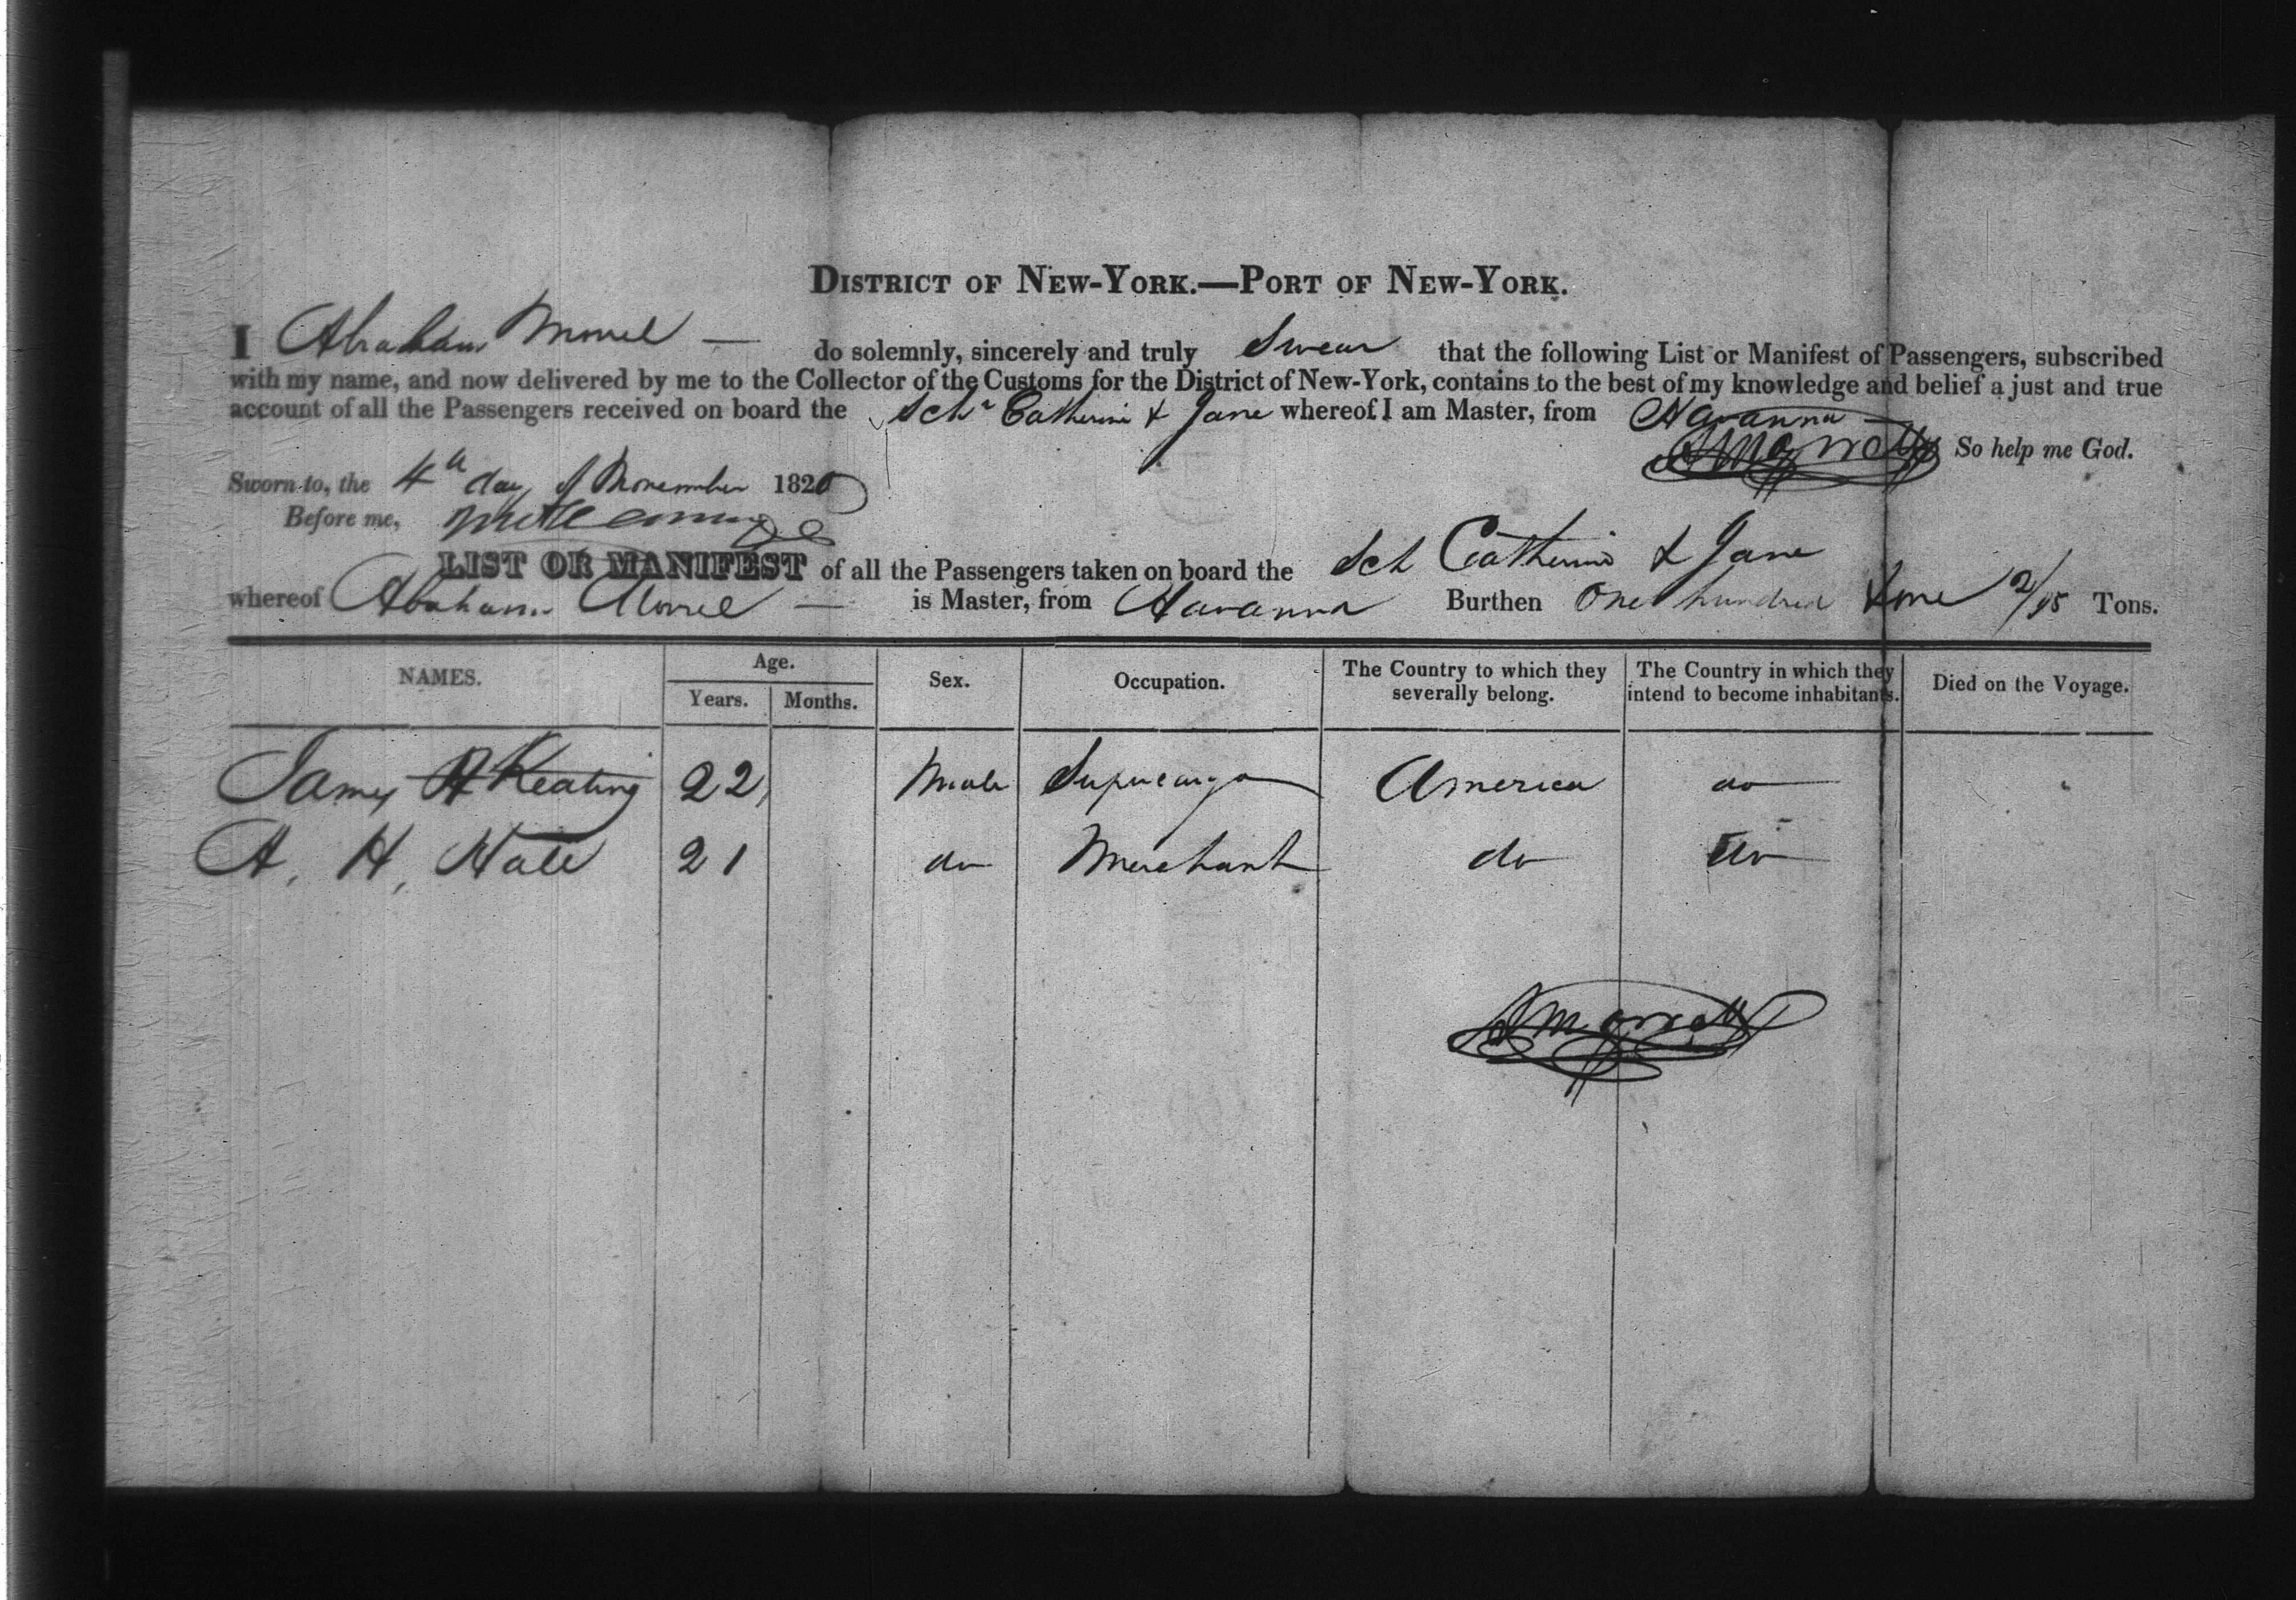 DISTRICT OF NEW-YORK.—PORT OF NEW-YORK.
I Abraham Morrel — do solemnly, sincerely and truly Swear that the following List or Manifest of Passengers, subscribed
with my name, and now delivered by me to the Collector of the Customs for the District of New-York, contains to the best of my knowledge and belief a just and true
account of all the Passengers received on board the Schr Catherine & Jane whereof I am Master, from Havanna
A Morrell So help me God.
Sworn to, the 4th day of November 1820
Before me,
LIST OR MANIFEST of all the Passengers taken on board the Sch Catherine & Jane
whereof Abraham Morrel — is Master, from Havanna Burthen One hundred & one 2/95 Tons.
NAMES. Age. Sex. Occupation. The Country to which they severally belong. The Country in which they intend to become inhabitants. Died on the Voyage.
Years. Months.
James R Keating 22 Male Supercargo America do
A. H. Hale 21 do Merchant do do
A Morrell